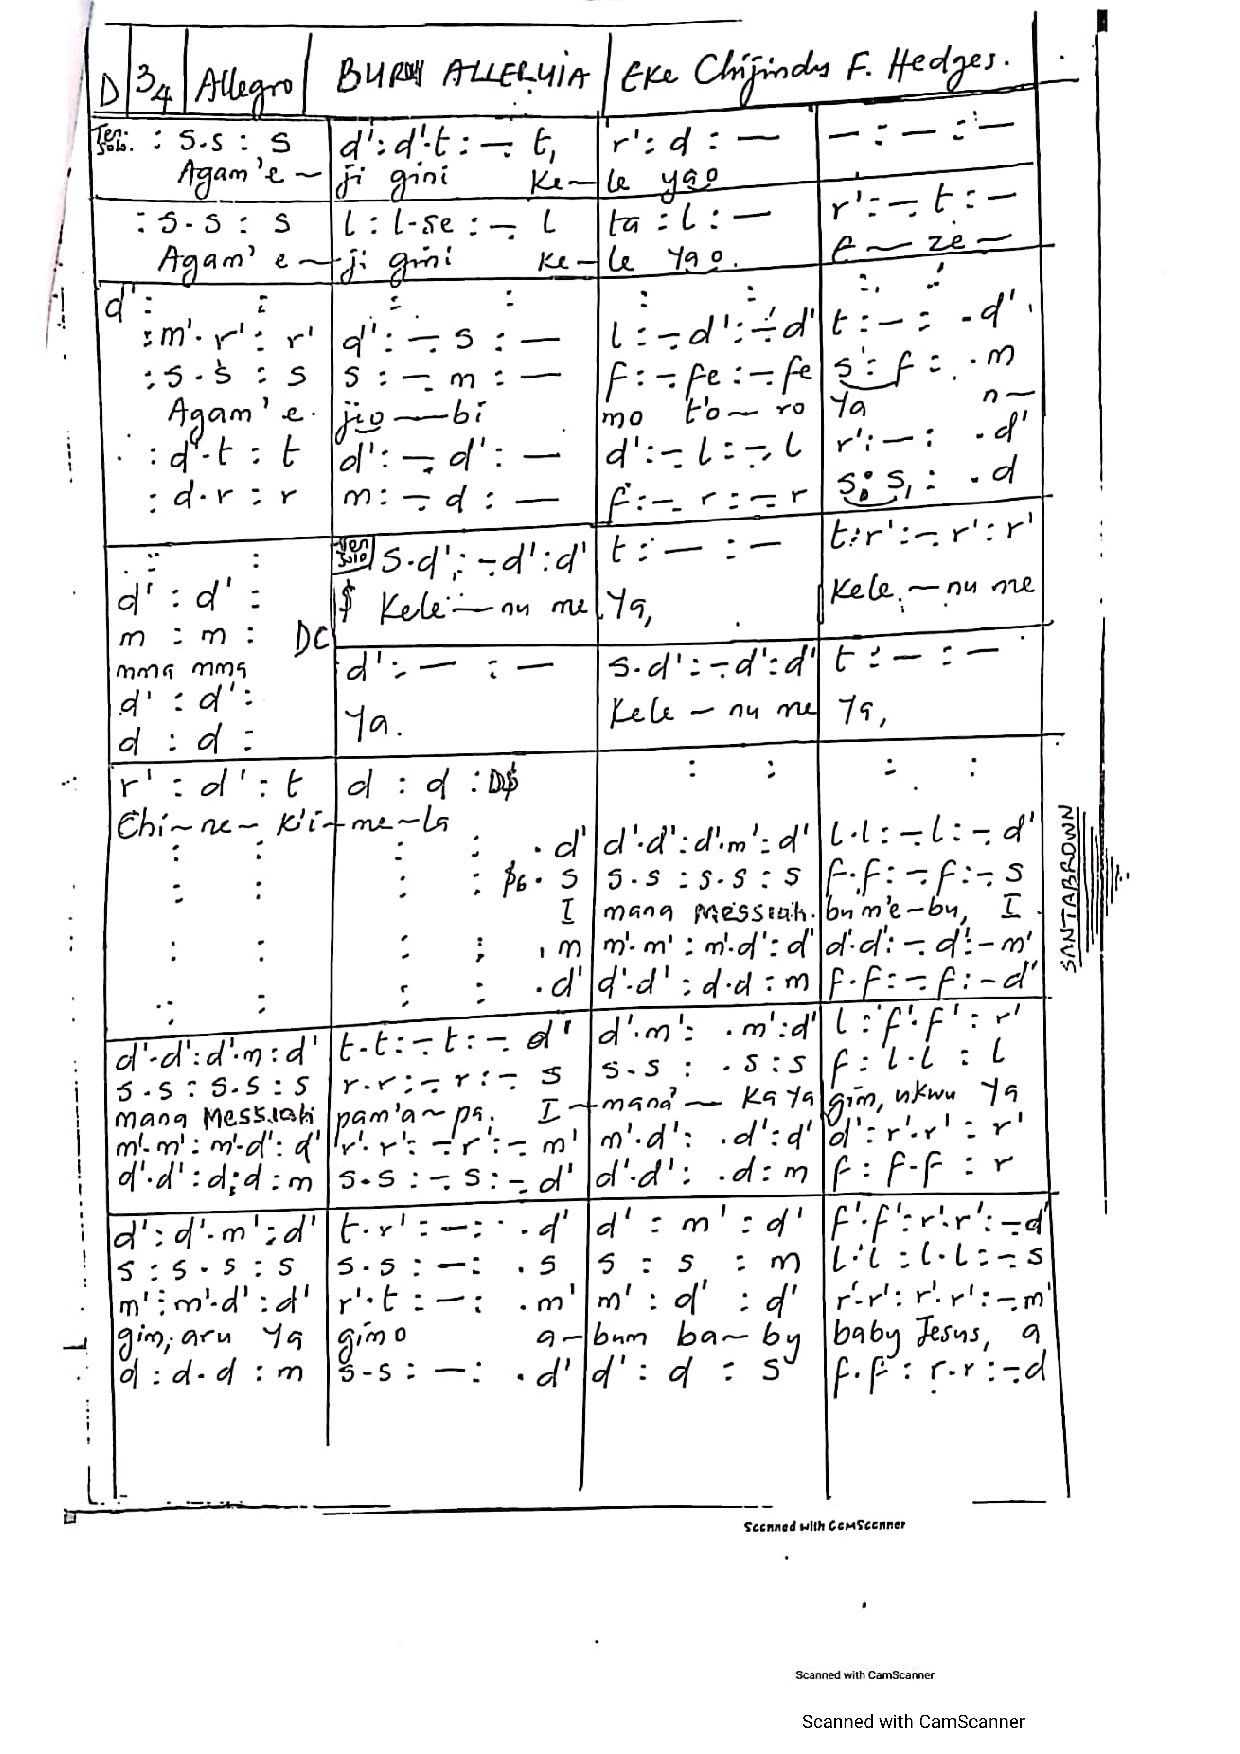 D 3/4 Allegro BURU ALLELUIA Eke Chijindu F. Hedges.
Ten. Solo. : s.s : s d' : d'.t : -. t, r' : d : — — : — : —
Agam'e ~ ji gini Ke ~ le yao
: s.s : s l : l.se : -. l ta : l : — r' : -. t : —
Agam' e ~ ji gini Ke ~ le Yao. E ~ ze ~
d' : : : : : : : :
: m'.r' : r' d' : -. s : — l : -. d' : -. d' t : — : .d'
: s.s : s s : -. m : — f : -. fe : -. fe s : f : .m
Agam'e jio ~ bi mo t'o ~ ro Ya n ~
: d'.t : t d' : -. d' : — d' : -. l : -. l r' : — : .d'
: d.r : r m : -. d : — f : -. r : -. r s : s, : .d
: : Ten Solo s.d' : -. d' : d' t : — : — t.r' : -. r' : r'
d' : d' : $ Kele ~ nu me Ya, Kele ~ nu me
m : m : DC
mma mma d' : — : — s.d' : -. d' : d' t : — : —
d' : d' : Ya. Kele ~ nu me Ya,
d : d :
r' : d' : t d : d : D$ : : : :
Chi ~ ne ~ k'i ~ me ~ la
: : : : .d' d'.d' : d'.m' : d' l.l : -. l : -. d'
: : : : .s s.s : s.s : s f.f : -. f : -. s
I mana Messiah. bu m'e ~ bu, I
: : : : .m m'.m' : m'.d' : d' d'.d' : -. d' : - m'
: : : : .d' d'.d' : d.d : m f.f : -. f : - d'
SANTABROWN
d'.d' : d'.m : d' t.t : -. t : -. d' d'.m' : .m' : d' l : f'.f' : r'
s.s : s.s : s r.r : -. r : -. s s.s : .s : s f : l.l : l
mana Messiah pam'a ~ pa. I ~ mana' ~ Ka Ya gim, ukwu Ya
m'.m' : m'.d' : d' r'.r' : -. r' : -. m' m'.d' : .d' : d' d' : r'.r' : r'
d'.d' : d.d : m s.s : -. s : -. d' d'.d' : .d : m f : f.f : r
d' : d'.m' : d' t.r' : — : .d' d' : m' : d' f'.f' : r'.r' : -. d'
s : s.s : s s.s : — : .s s : s : m l.l : l.l : -. s
m' : m'.d' : d' r'.t : — : .m' m' : d' : d' r'.r' : r'.r' : -. m'
gim, aru Ya gimo a ~ bum ba ~ by baby Jesus, a
d : d.d : m s.s : — : .d' d' : d : s f.f : r.r : -. d
Scanned with CamScanner
Scanned with CamScanner
Scanned with CamScanner